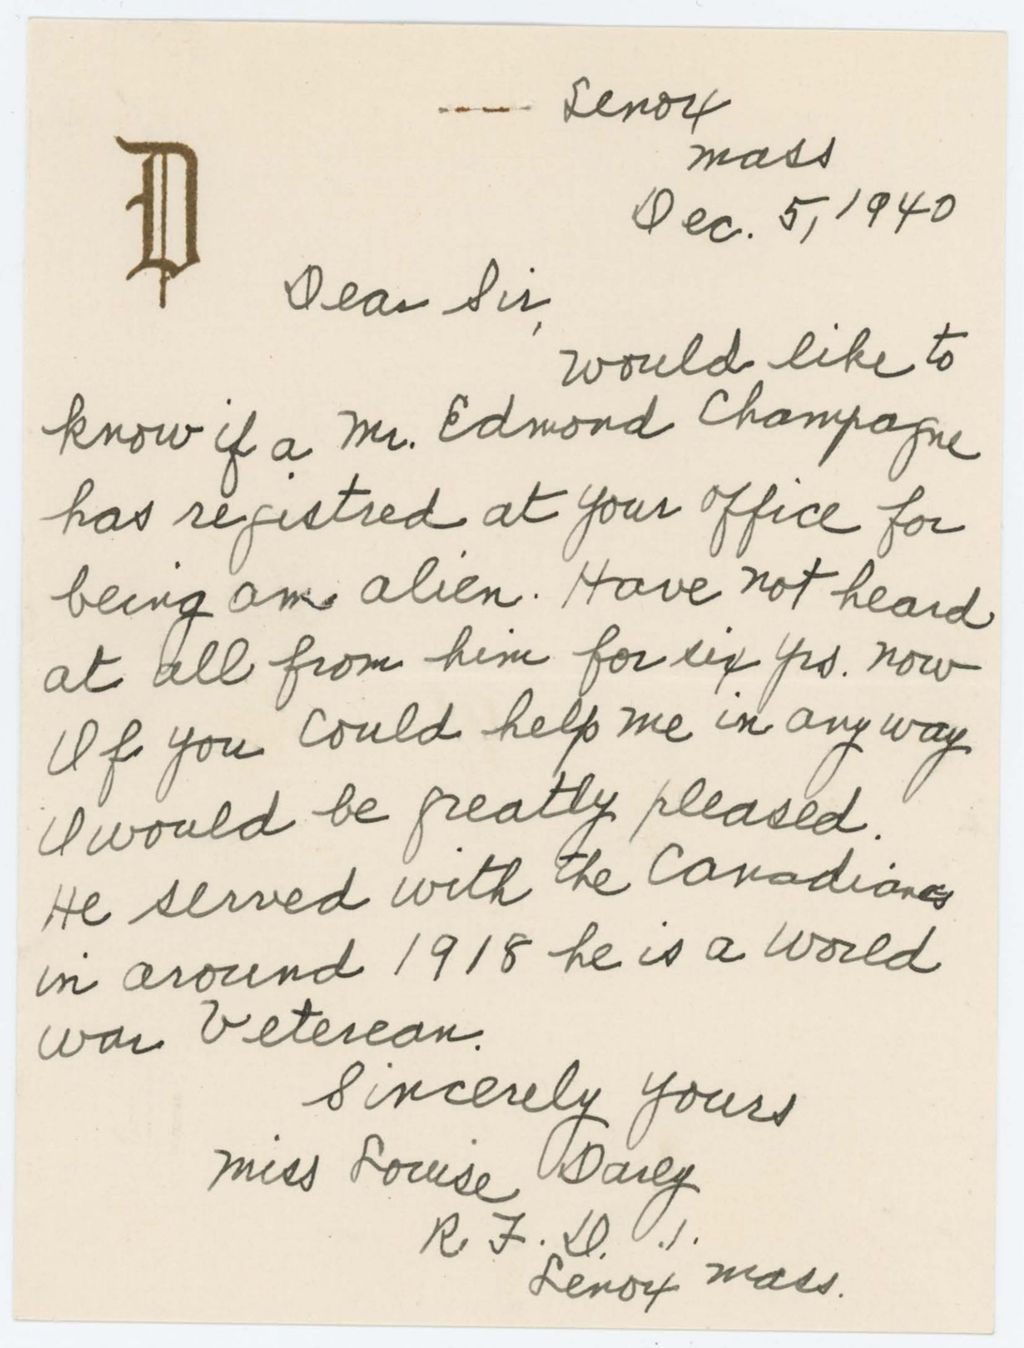 D
Lenox
Mass
Dec. 5, 1940
Dear Sir,
would like to
know if a Mr. Edmond Champagne
has registred at your office for
being am alien. Have not heard
at all from him for six yrs. now
If you could help me in any way
I would be greatly pleased.
He served with the Canadians
in around 1918 he is a World
war Veterean.
Sincerely yours
Miss Louise Darey
R. F. D. .1.
Lenox Mass.